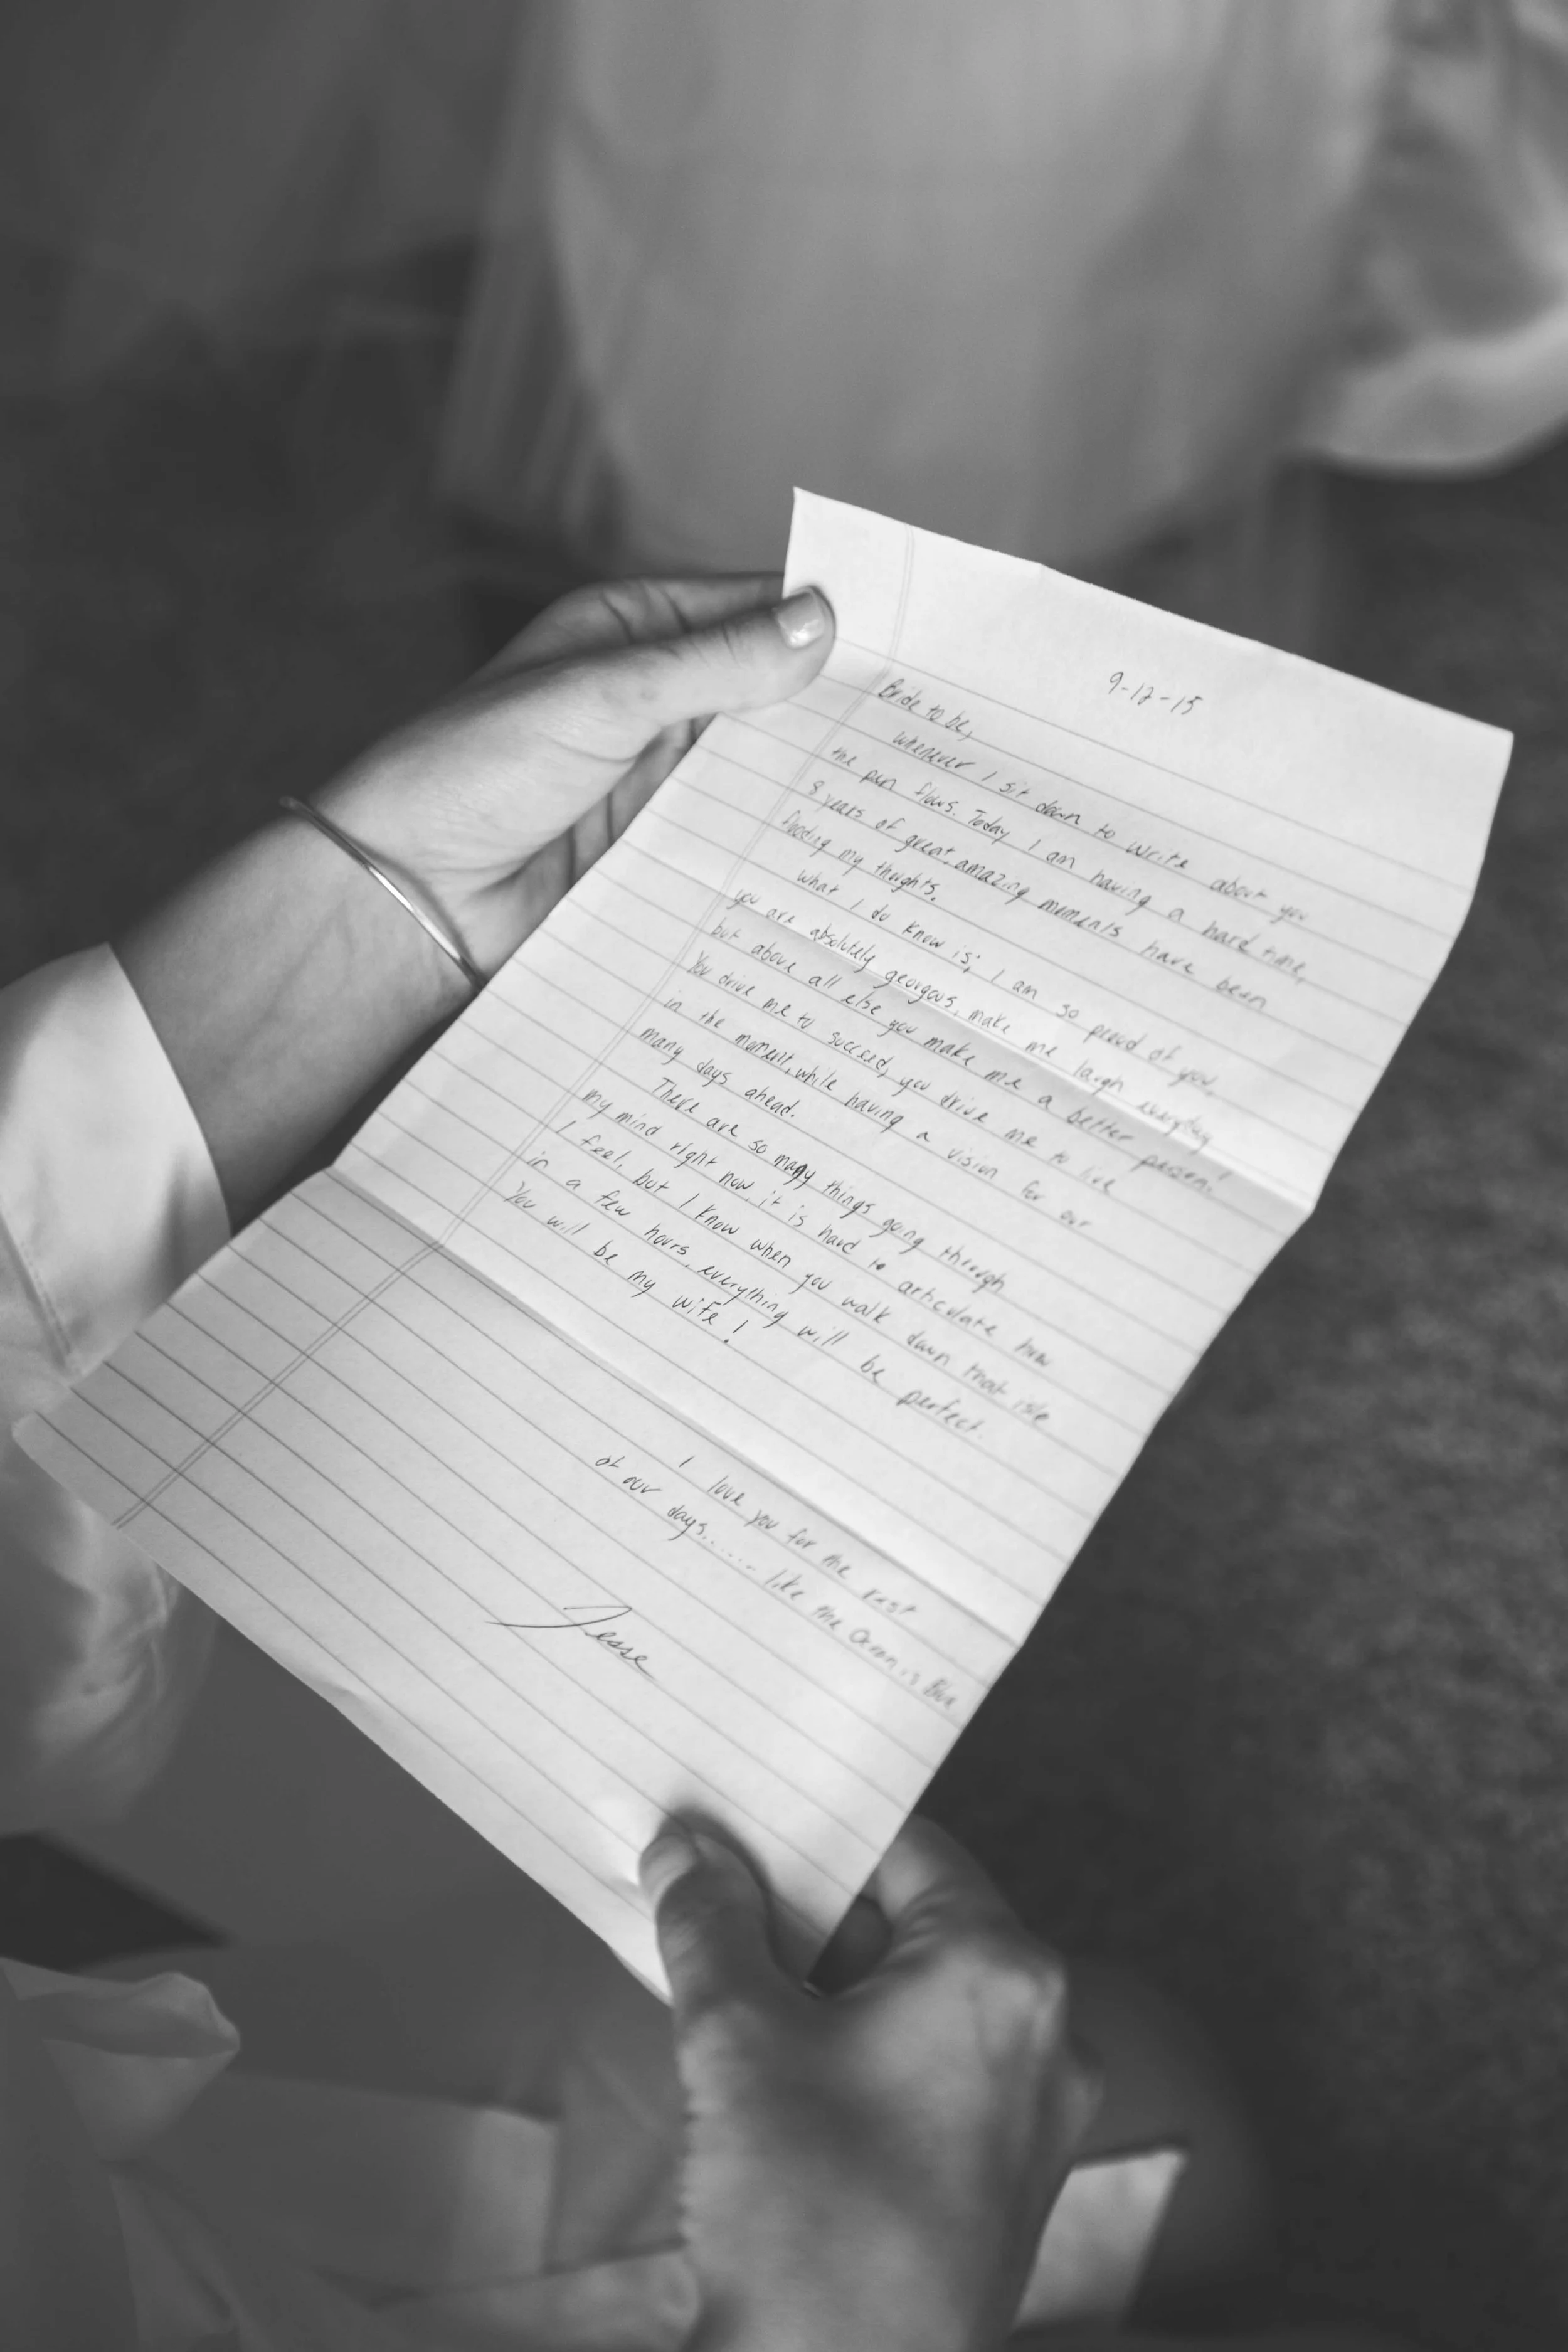 9-12-15
Bride to be,
whenever I sit down to write about you
the pen flows. Today I am having a hard time,
8 years of great, amazing moments have been
flooding my thoughts.
what I do know is; I am so proud of you,
you are absolutely georgous, make me laugh everyday
but above all else you make me a better person!
You drive me to succeed, you drive me to live
in the moment, while having a vision for our
many days ahead.
There are so many things going through
my mind right now, it is hard to articulate how
I feel, but I know when you walk down that isle
in a few hours, everything will be perfect.
You will be my wife!
I love you for the rest
of our days...... like the Ocean is Blue
Jesse